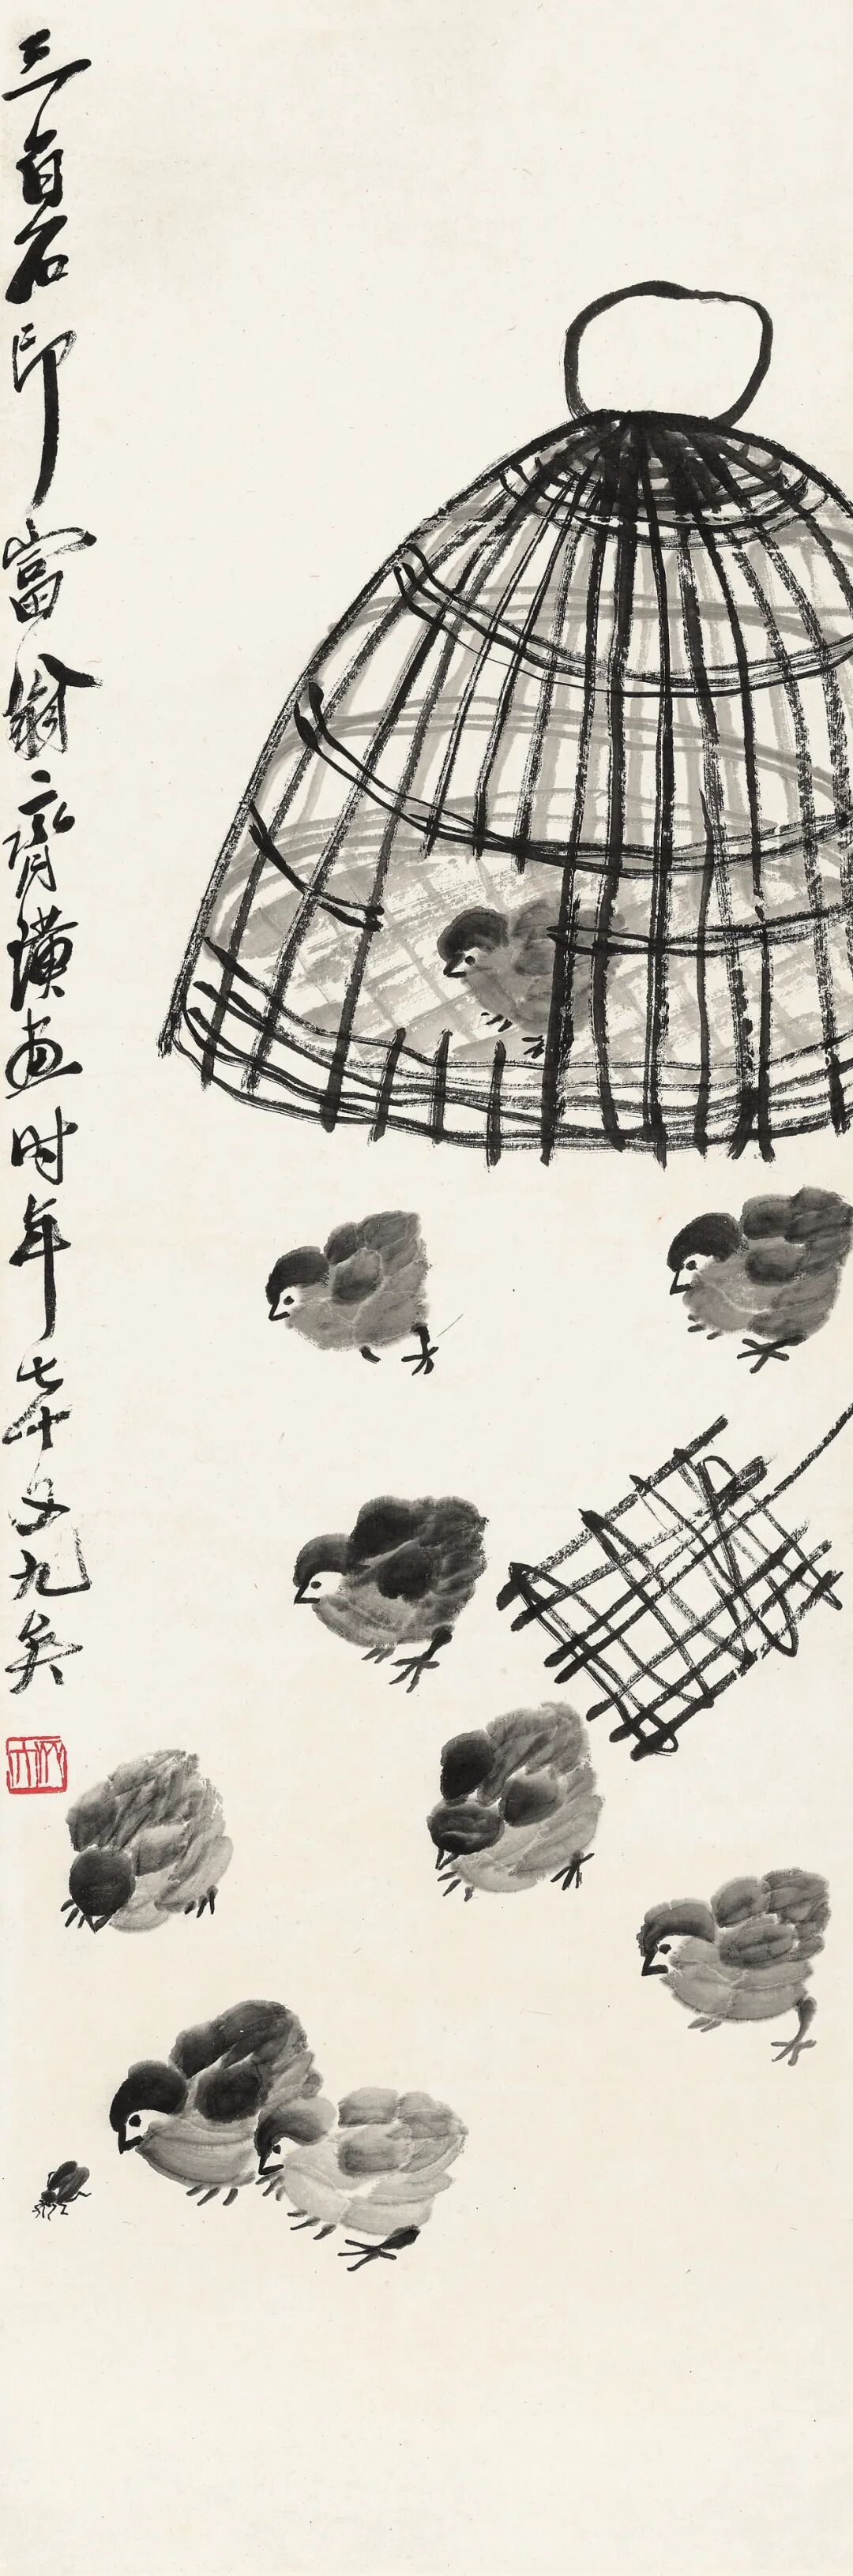 三百石印富翁齐璜画时年七十又九矣